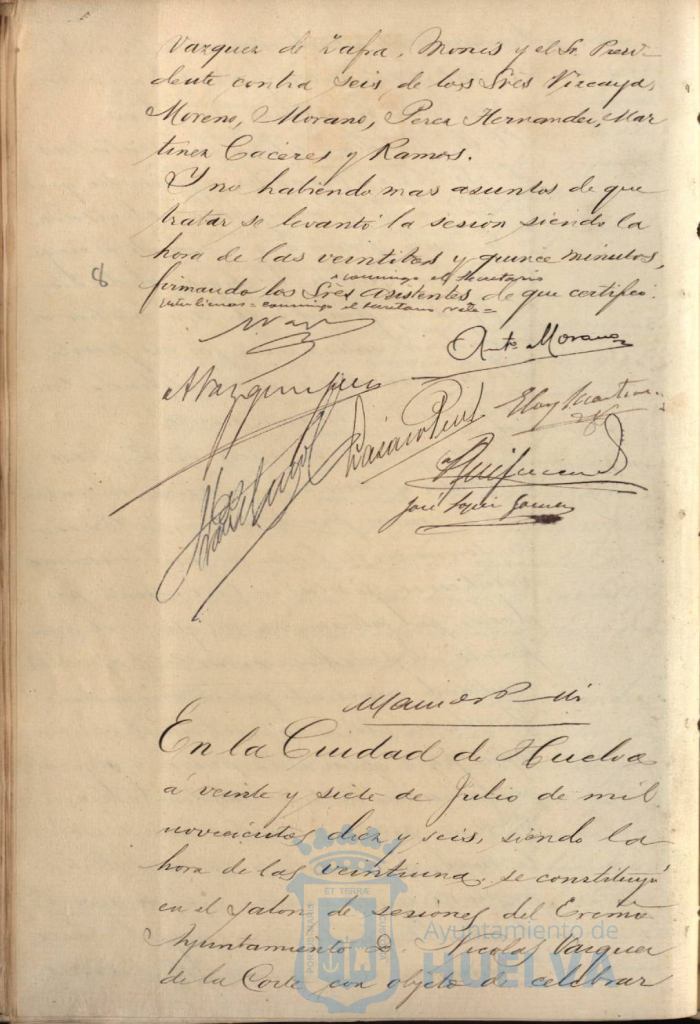 Vazquez de Zafra, Monis y el Sr. Presi-
dente contra seis de los Sres Vizcaya,
Moreno, Morano, Perez Hernandez, Mar
tinez Caceres y Ramos.
Y no habiendo mas asuntos de que
tratar se levantó la sesion siendo la
hora de las veintitres y quince minutos,
conmigo el Secretario
8
firmando los Sres asistentes, de que certifico.
interlineas = conmigo el secretario vale =
Ant. Morano
Eloy Martinez
José Lopez Gomez
En la Ciudad de Huelva
á veinte y siete de Julio de mil
novecientos diez y seis, siendo la
hora de las veintiuna, se constituyó
en el salon de sesiones del Excmo
Ayuntamiento D. Nicolas Vazquez
de la Corte con objeto de celebrar
ET TERRÆ
Ayuntamiento de
HUELVA